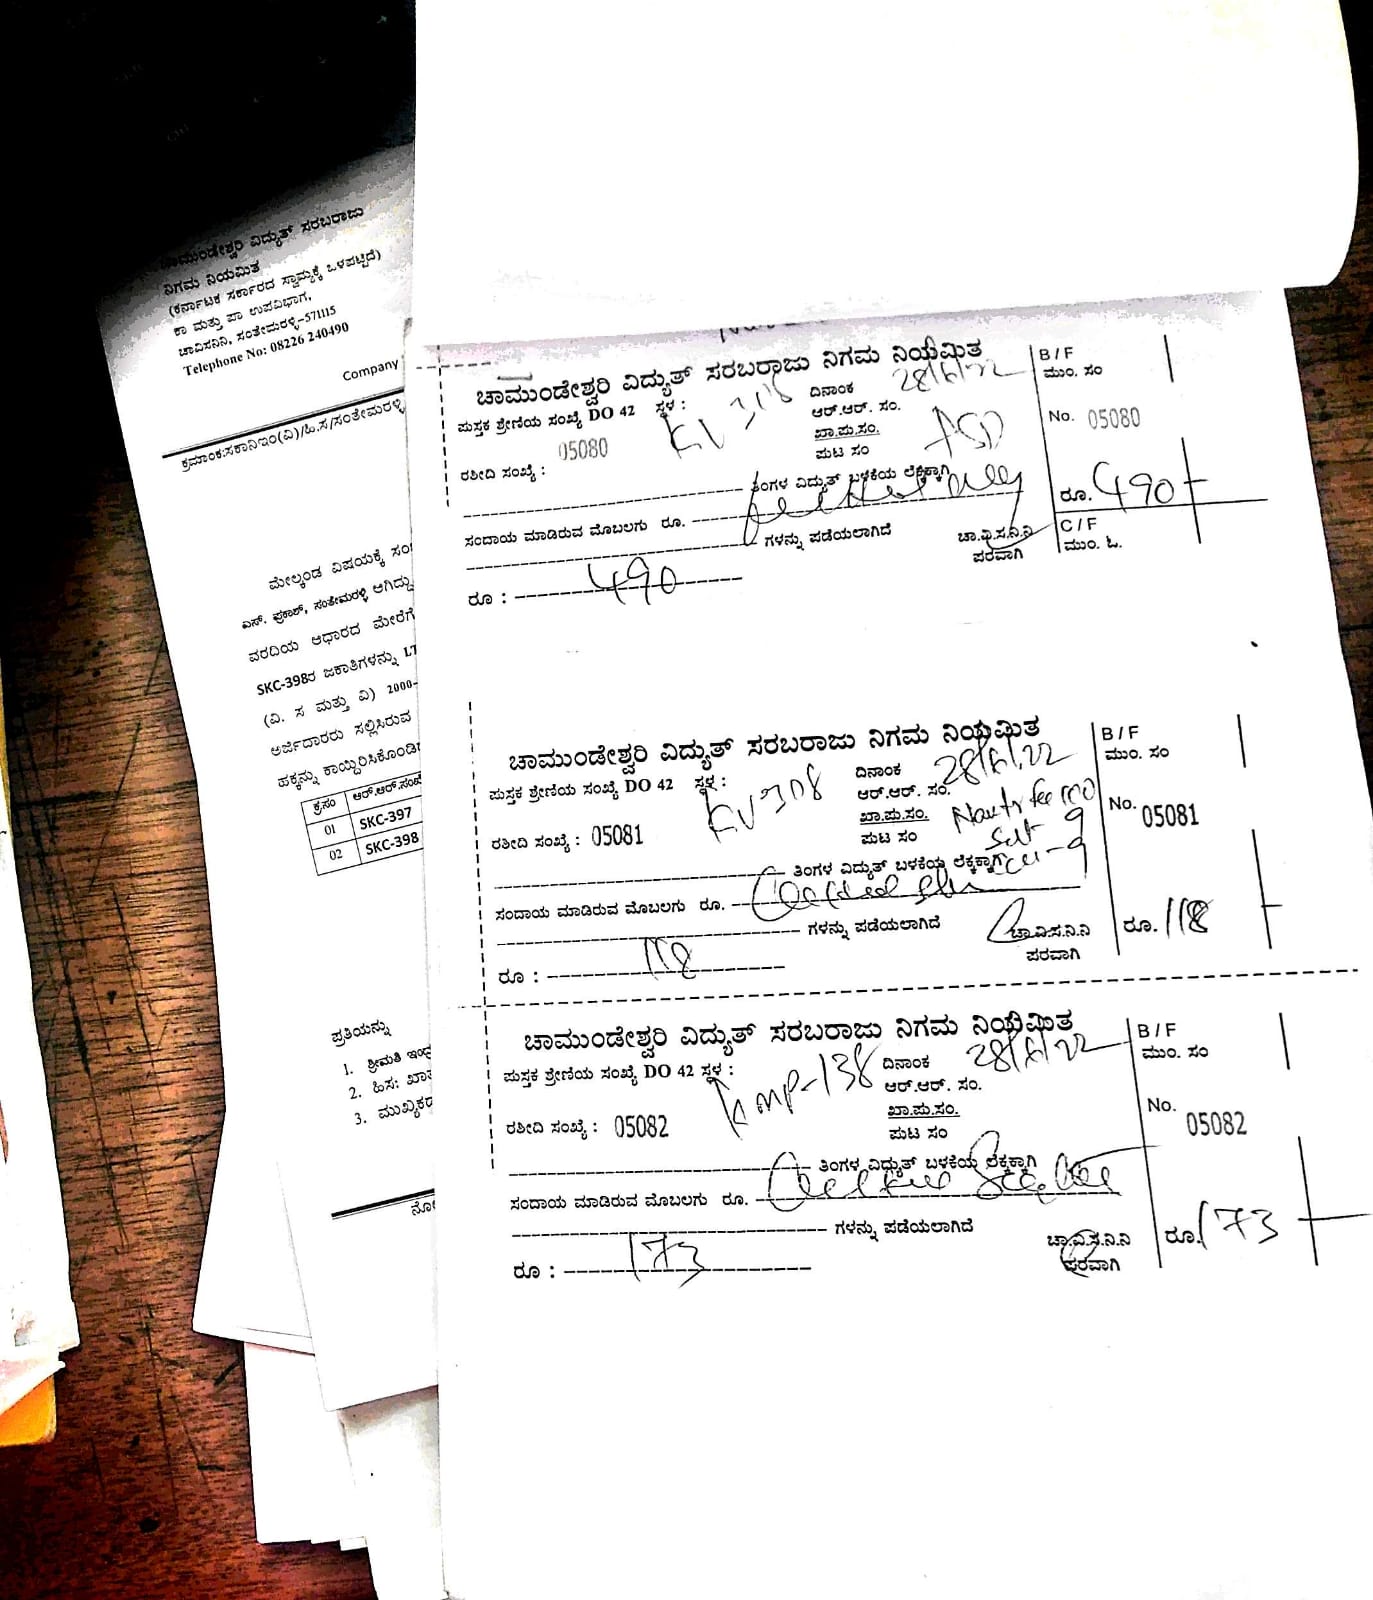 ಚಾಮುಂಡೇಶ್ವರಿ ವಿದ್ಯುತ್ ಸರಬರಾಜು
ನಿಗಮ ನಿಯಮಿತ
(ಕರ್ನಾಟಕ ಸರ್ಕಾರದ ಸ್ವಾಮ್ಯಕ್ಕೆ ಒಳಪಟ್ಟಿದೆ)
ಕಾ ಮತ್ತು ಪಾ ಉಪವಿಭಾಗ,
ಚಾವಿಸನಿನಿ, ಸಂತೇಮರಳ್ಳಿ-571115
Telephone No: 08226 240490
Company
ಕ್ರಮಾಂಕ:ಸಕಾನಿಇಂ(ವಿ)/ಹಿ.ಸ/ಸಂತೇಮರಳ್ಳಿ
ಮೇಲ್ಕಂಡ ವಿಷಯಕ್ಕೆ
ಎಸ್. ಪ್ರಕಾಶ್, ಸಂತೇಮರಳ್ಳಿ ಆಗಿದ್ದು
ವರದಿಯ ಆಧಾರದ ಮೇರೆಗೆ
SKC-398ರ ಜಕಾತಿಗಳನ್ನು LT
(ವಿ. ಸ ಮತ್ತು ವಿ) 2000-
ಅರ್ಜಿದಾರರು ಸಲ್ಲಿಸಿರುವ
ಹಕ್ಕನ್ನು
ಕ್ರ.ಸಂ ಆರ್.ಆರ್.ಸಂಖ್ಯೆ
01 SKC-397
02 SKC-398
ಪ್ರತಿಯನ್ನು
1. ಶ್ರೀಮತಿ
2. ಹಿಸ:
3.
ಚಾಮುಂಡೇಶ್ವರಿ ವಿದ್ಯುತ್ ಸರಬರಾಜು ನಿಗಮ ನಿಯಮಿತ
ಪುಸ್ತಕ ಶ್ರೇಣಿಯ ಸಂಖ್ಯೆ DO 42 ಸ್ಥಳ : KV 308 ದಿನಾಂಕ 28/6/22
ಆರ್.ಆರ್. ಸಂ.
ರಶೀದಿ ಸಂಖ್ಯೆ : 05080 ಖಾ.ಪು.ಸಂ. ASD
ಪುಟ ಸಂ
ತಿಂಗಳ ವಿದ್ಯುತ್ ಬಳಕೆಯ ಲೆಕ್ಕಕ್ಕಾಗಿ
ಸಂದಾಯ ಮಾಡಿರುವ ಮೊಬಲಗು ರೂ.
ಗಳನ್ನು ಪಡೆಯಲಾಗಿದೆ
ಚಾ.ವಿ.ಸ.ನಿ.ನಿ
ಪರವಾಗಿ
ರೂ : 490
B / F
ಮುಂ. ಸಂ
No. 05080
ರೂ. 490
C / F
ಮುಂ. ಓ.
ಚಾಮುಂಡೇಶ್ವರಿ ವಿದ್ಯುತ್ ಸರಬರಾಜು ನಿಗಮ ನಿಯಮಿತ
ಪುಸ್ತಕ ಶ್ರೇಣಿಯ ಸಂಖ್ಯೆ DO 42 ಸ್ಥಳ : KV 308 ದಿನಾಂಕ 28/6/22
ಆರ್.ಆರ್. ಸಂ.
ರಶೀದಿ ಸಂಖ್ಯೆ : 05081 ಖಾ.ಪು.ಸಂ. fee 100
ಪುಟ ಸಂ
ತಿಂಗಳ ವಿದ್ಯುತ್ ಬಳಕೆಯ ಲೆಕ್ಕಕ್ಕಾಗಿ
ಸಂದಾಯ ಮಾಡಿರುವ ಮೊಬಲಗು ರೂ.
ಗಳನ್ನು ಪಡೆಯಲಾಗಿದೆ
ಚಾ.ವಿ.ಸ.ನಿ.ನಿ
ಪರವಾಗಿ
ರೂ : 118
B / F
ಮುಂ. ಸಂ
No. 05081
ರೂ. 118
ಚಾಮುಂಡೇಶ್ವರಿ ವಿದ್ಯುತ್ ಸರಬರಾಜು ನಿಗಮ ನಿಯಮಿತ
ಪುಸ್ತಕ ಶ್ರೇಣಿಯ ಸಂಖ್ಯೆ DO 42 ಸ್ಥಳ : KMP-138 ದಿನಾಂಕ 28/6/22
ಆರ್.ಆರ್. ಸಂ.
ರಶೀದಿ ಸಂಖ್ಯೆ : 05082 ಖಾ.ಪು.ಸಂ.
ಪುಟ ಸಂ
ತಿಂಗಳ ವಿದ್ಯುತ್ ಬಳಕೆಯ ಲೆಕ್ಕಕ್ಕಾಗಿ
ಸಂದಾಯ ಮಾಡಿರುವ ಮೊಬಲಗು ರೂ.
ಗಳನ್ನು ಪಡೆಯಲಾಗಿದೆ
ಚಾ.ವಿ.ಸ.ನಿ.ನಿ
ಪರವಾಗಿ
ರೂ : 173
B / F
ಮುಂ. ಸಂ
No. 05082
ರೂ. 173